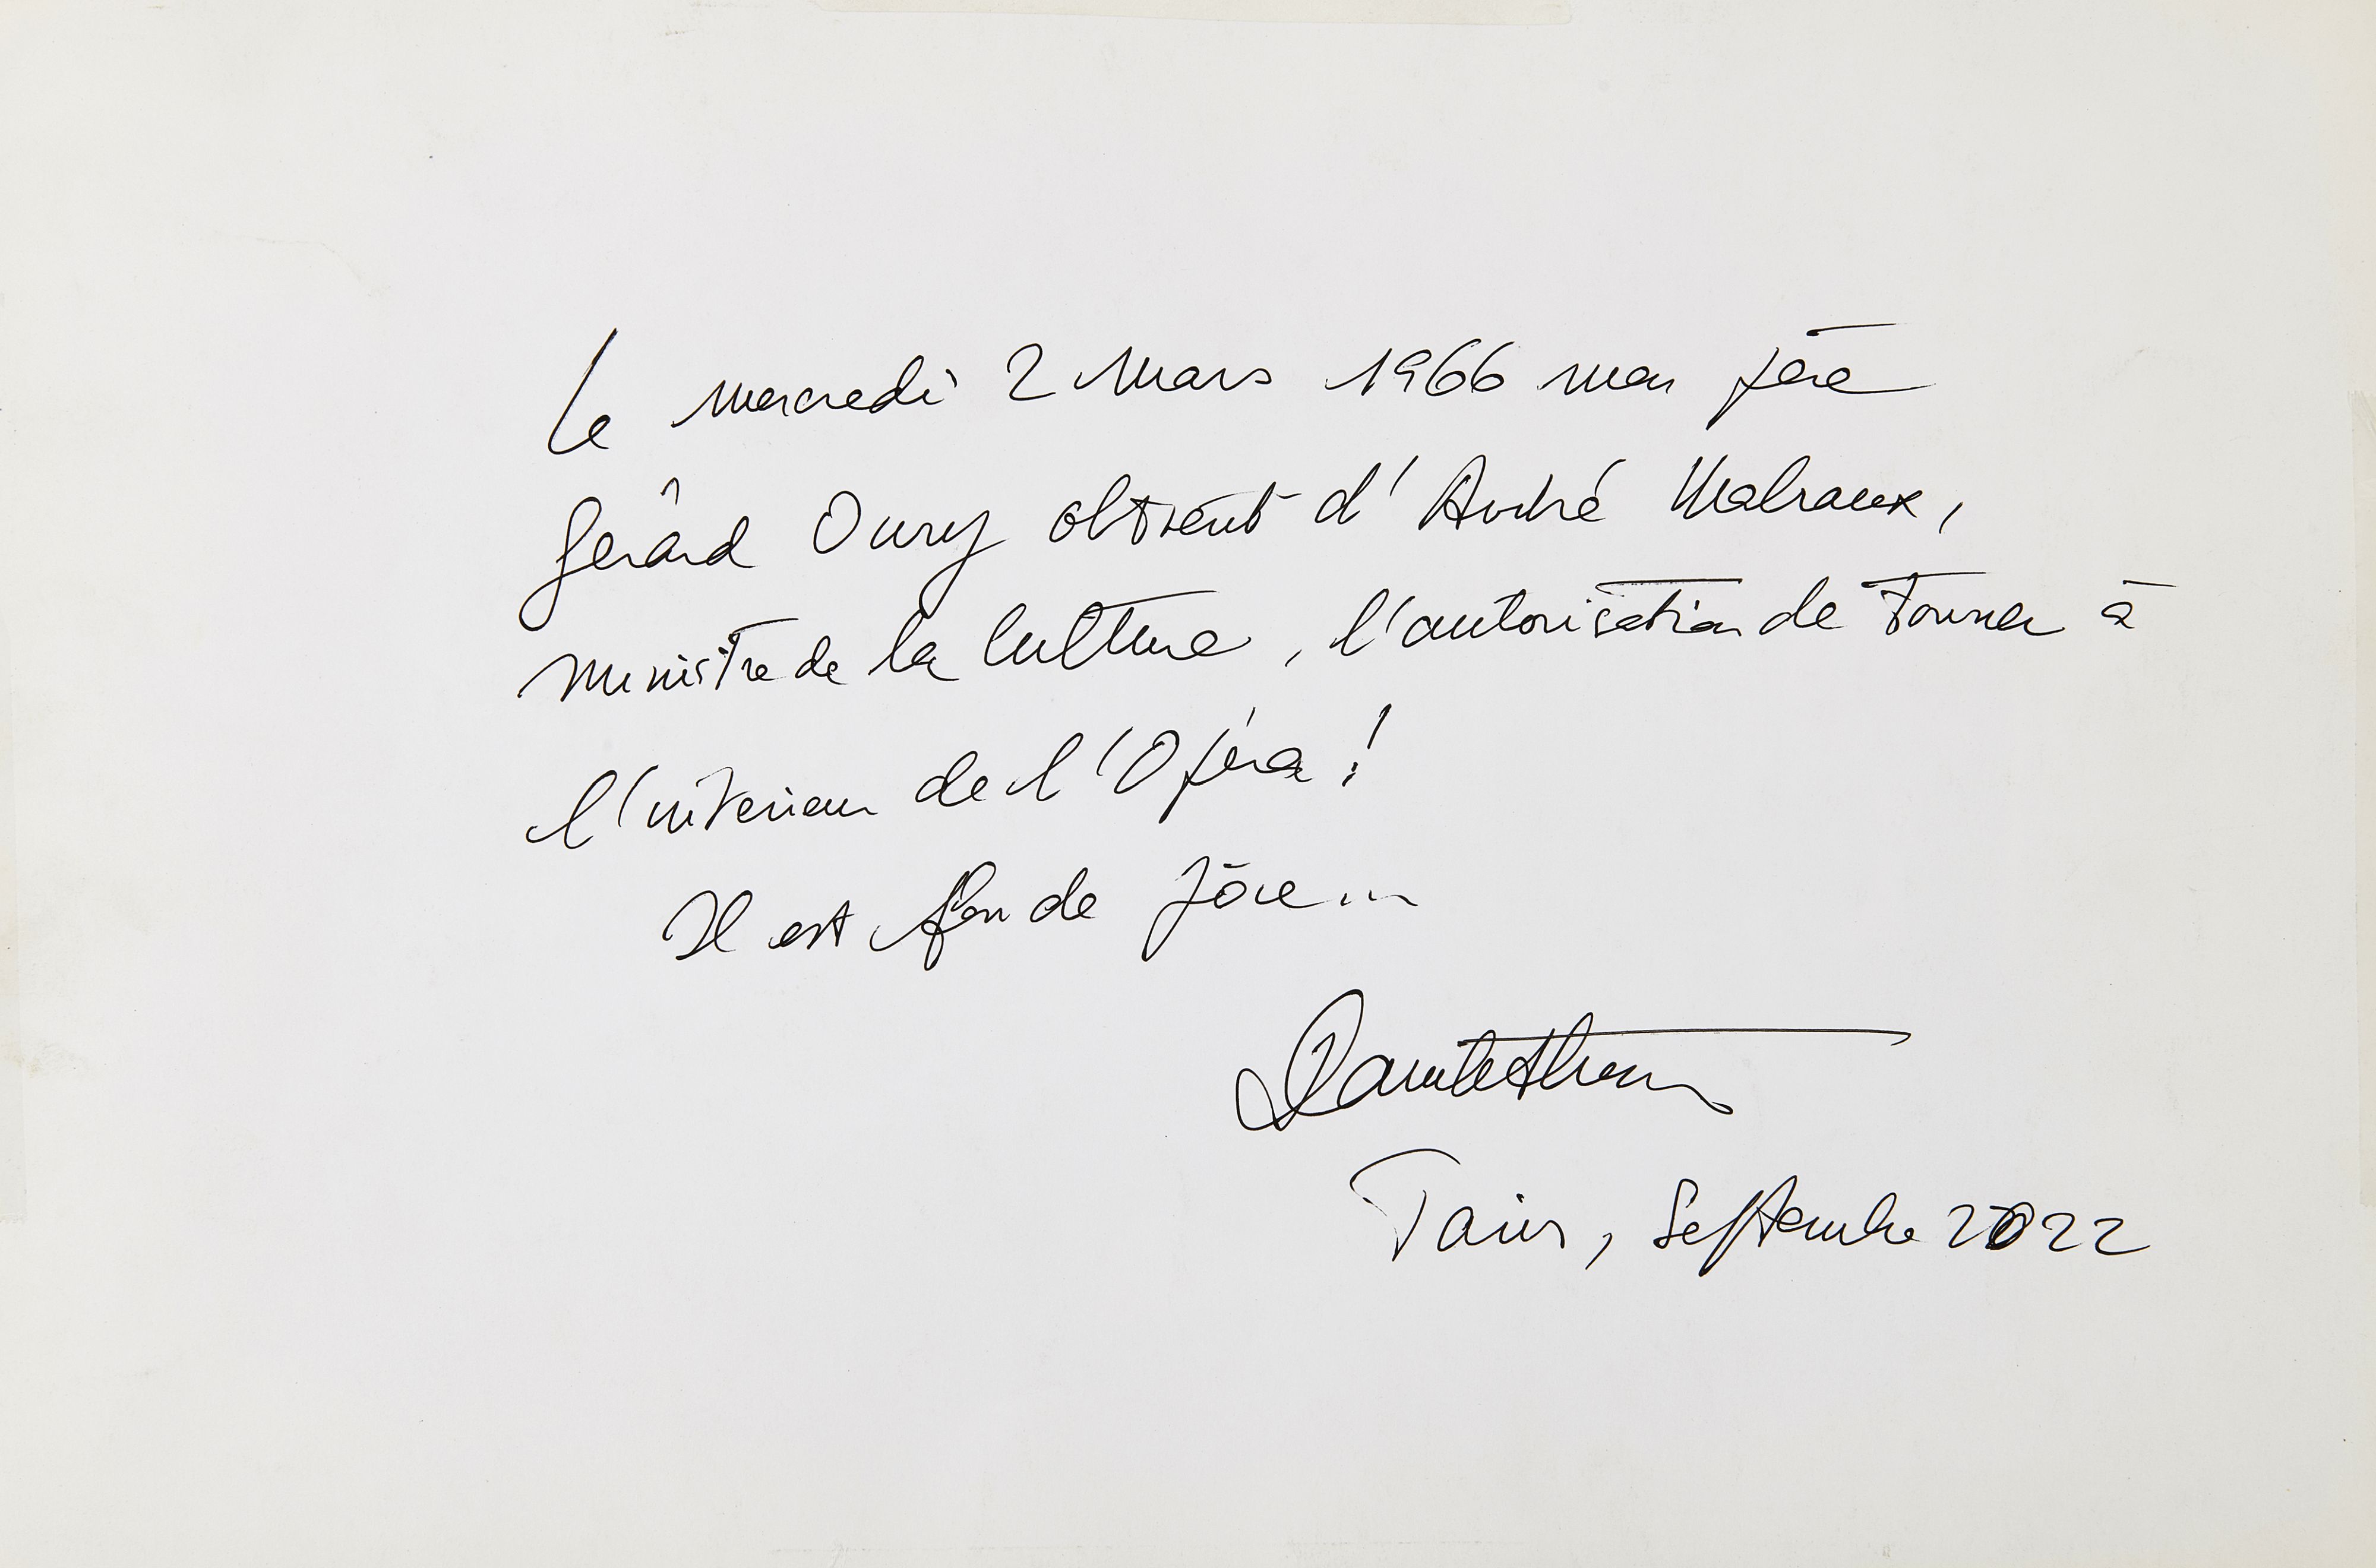 Le mercredi 2 Mars 1966 mon père
Gérard Oury obtient d'André Malraux,
ministre de la Culture, l'autorisation de tourner à
l'intérieur de l'Opéra !
Il est fou de joie...
Paris, Septembre 2022